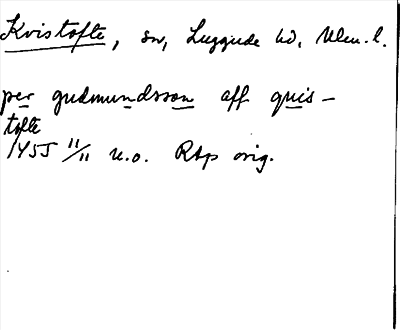 Kvistofte, sn, Luggude hd, Mlm. l.
per gudmundsson aff quis-
tofte
1455 11/11 u.o. Rap orig.